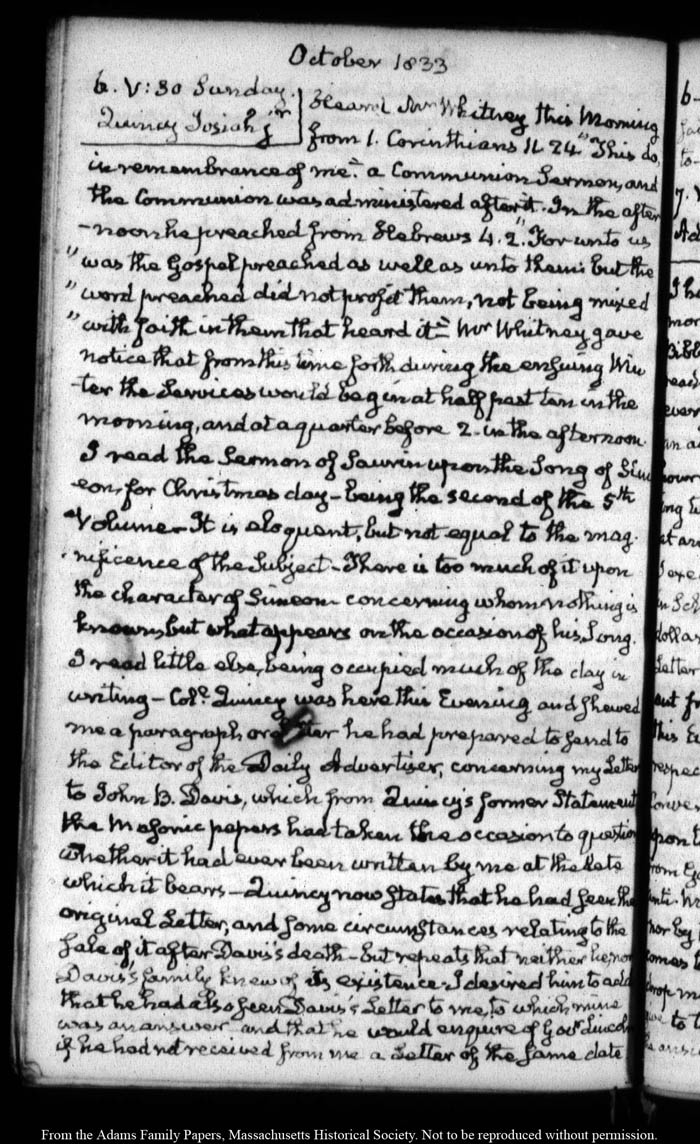 October 1833
6. V:30 Sunday.
Quincy Josiah jr
Heard Mr Whitney this Morning
from 1. Corinthians 11. 24 "This do,
in remembrance of me" a Communion Sermon, and
the Communion was administered after it. In the after
-noon he preached from Hebrews 4. 2 "For unto us
"was the Gospel preached as well as unto them: but the
"word preached did not profit them, not being mixed
"with faith in them that heard it" Mr Whitney gave
notice that from this time forth during the ensuing Win
-ter the Services would begin at half past ten in the
morning, and at a quarter before 2. in the afternoon.
I read the Sermon of Saurin upon the Song of Sim
eon, for Christmas day - being the second of the 5th
Volume - It is eloquent, but not equal to the mag-
-nificence of the Subject - There is too much of it upon
the character of Simeon concerning whom nothing is
known, but what appears on the occasion of his Song.
I read little else, being occupied much of the day in
writing - Col. Quincy was here this Evening and shewed
me a paragraph or Letter he had prepared to send to
the Editor of the Daily Advertiser, concerning my Letter
to John B. Davis, which from Quincy's former Statement
the Masonic papers had taken the occasion to question
whether it had ever been written by me at the date
which it bears - Quincy now States that he had seen the
original Letter, and some circumstances relating to the
sale of it after Davis's death - but repeats that neither he, nor
Davis's family knew of its existence - I desired him to add
that he had also seen Davis's Letter to me, to which mine
was an answer and that he would enquire of Govr Lincoln
if he had not received from me a Letter of the same date